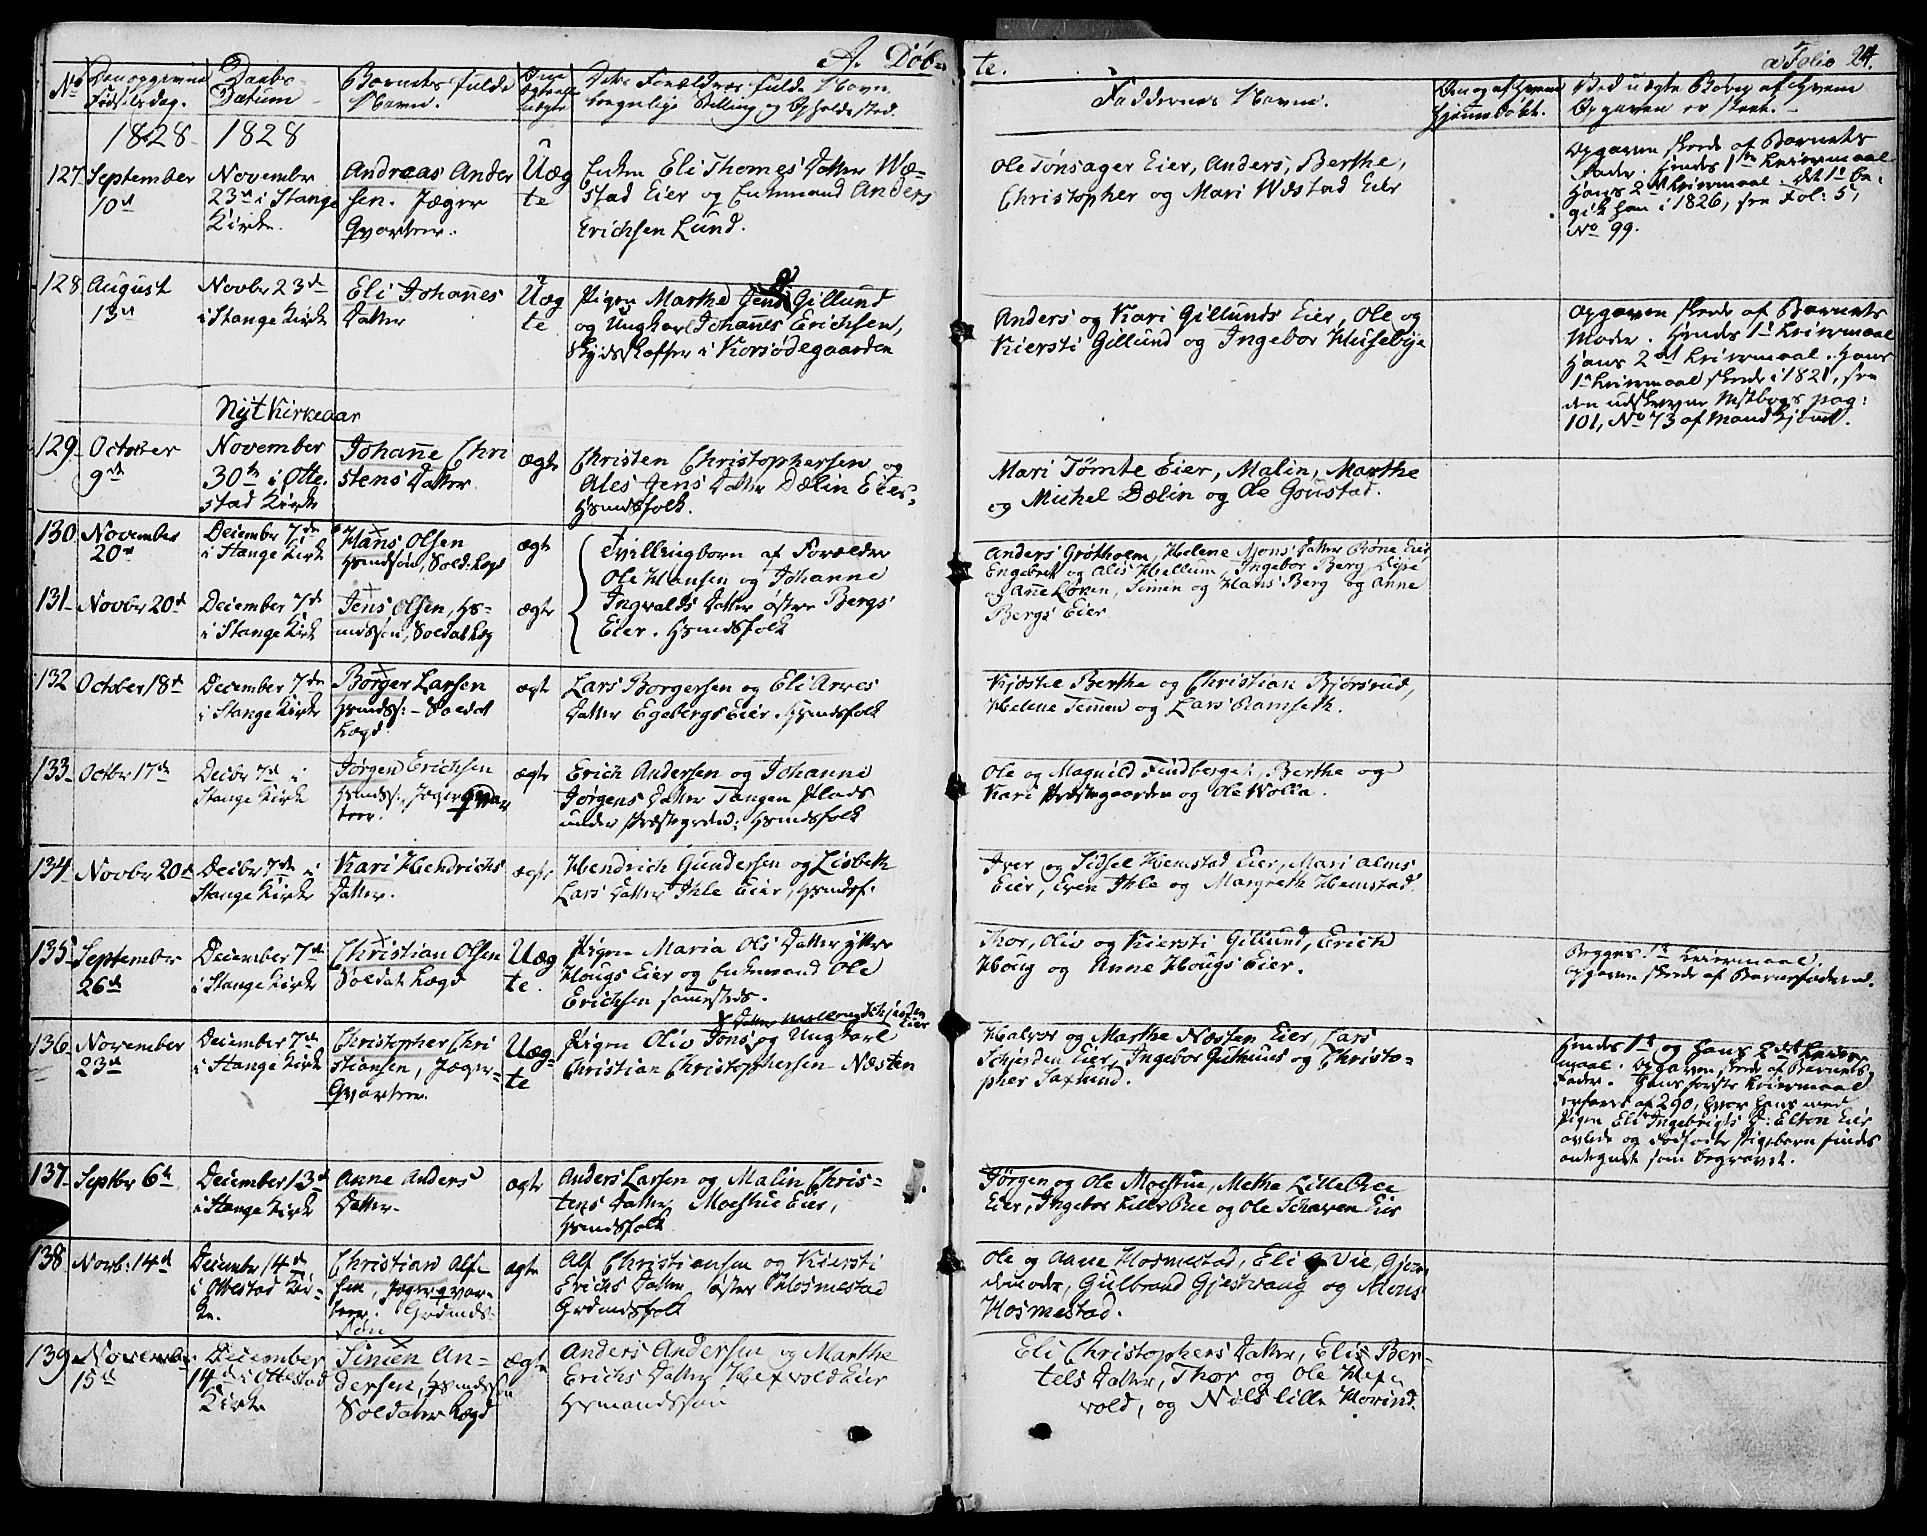 A. Døb-
te.
Folio 24.
No
Den opgivne
Fødselsdag.
Daabs-
Datum
Barnets fulde
Navn.
Om
Ægte eller
Uægte
Dets Forældres fulde Navn,
borgerlige Stilling og Opholdssted.
Faddernes Navne.
Om og af Hvem
hjemmedøbt.
Ved uægte Børn af hvem
Opgaven er skeet.
1828
1828
127
September
10d
November
23d i Stange
Kirke.
Andreas Ander
sen. Jæger
Qvarteer.
Uæg
te
Enken Eli Thomes Datter Wæ-
stad Eier og Enkemand Anders
Erichsen Lund.
Ole Tønsager Eier, Anders, Berthe,
Christopher og Mari Wæstad Eier
Opgaven skede af Barnets
Fader. Hendes 1ste Leiermaal
Hans 2det Leiermaal. Det 1ste be-
gik han i 1826, see Fol: 5,
No 99.
128
August
13d
Novbr 23d
i Stange Kirke
Eli Johanes
Datter
Uæg
te
Pigen Marthe Jens D Gillund
og Ungkarl Johannes Erichsen,
Skydsskaffer i Korsødegaarden
Anders og Kari Gillunds Eier, Ole og
Kiersti Gillund og Ingebor Husebye
Opgaven skede af Barnets
Moder. Hendes 1ste Leiermaal
Hans 2det Leiermaal. Hans
1ste Leiermaal skede i 1821, see
den udskrevne Mstbogs pag:
101, No 73 af Mandkjønnet.
Nyt Kirkeaar
129
October
9de
November
30te i Otte-
stad Kirke
Johanne Chri
stens Datter
ægte
Christen Christophersen og
Ales Jens Datter Dælin Eier.
Husmdsfolk.
Mari Tømte Eier, Malin, Marthe
og Michel Dælin og Ole Goustad.
130
November
20de
December 7de
i Stange Kirke
Hans Olsen
Husmdssøn, Sold: Lægd
ægte
Tvillingbørn af Forældre
Ole Hansen og Johanne
Ingvalds Datter østre Bergs
Eier. Husmdsfolk
Anders Grøtholm, Helene Mons Datter Røne Eier
Engebret og Alis Hellum, Ingebor Berg
og Anne Løken, Simen og Hans Berg og Anne
Bergs Eier.
131
Novbr 20de
December 7de
i Stange Kirke
Jens Olsen, Hus-
mdssøn, Soldat Lægd
ægte
132
October 18de
December 7de
i Stange Kirke
Børger Larsen
Husmdss: - Soldat
Lægd
ægte
Lars Borgersen og Eli Arnes
Datter Egebergs Eier. Husmdsfolk
Kjæstel Berthe og Christian Bjørsrud,
Helene Temen og Lars Ramseth.
133
Octbr 17de
Decbr 7de i
Stange Kirke
Jørgen Erichsen
Husmdss:, Jæger Qvar
teer.
ægte
Erich Andersen og Johanne
Jørgens Datter Tangen Plads
under Præstegrden: Husmdsfolk
Ole og Magnild Findberget, Berthe og
Kari Præstegaarden og Ole Wolla.
134
Novbr 20de
Decbr 7de i
Stange Kirke
Kari Hendrichs
Datter.
ægte
Hendrich Gundersen og Lisbeth
Lars Datter Ihle Eier, Husmdsf.
Iver og Sidsel Hemstad Eier, Mari Alms
Eier, Even Ihle og Margrethe Hemstad.
135
September
26de
December 7de
i Stange Kirke
Christian Olsen
Soldat Lægd
Uæg
te.
Pigen Maria Ols Datter yttre
Hougs Eier og Enkemand Ole
Erichsen sammesteds.
Thor, Oliv og Kiersti Gillund, Erich
Houg og Anne Hougs Eier.
Begges 1ste Leiermaal.
Opgaven skede af Barnefaderen.
136
November
23de
December 7de
i Stange Kirke
Christopher Chri
stiansen, Jæger-
Qvarteer.
Uæg-
te
Pigen Oliv Jons og Ungkarl
Christian Christophersen Næsten
Halvor og Marthe Næsten Eier, Lars
Schjerden Eier, Ingebor Guthuus og Christo-
pher Saxlund.
Hendes 1ste og hans 2det Leier-
maal. Opgaven skede af Barnets
Fader. Hans første Leiermaal
erfares af 290, hvor hans med
Pigen Eli Ingebrigts D: Elton Eier
avlede og fødte Pigebarn findes
antegnet som begravet.
137
Septbr 6te
December 13de
i Stange Kirke
Anne Anders
Datter.
ægte
Anders Larsen og Malin Chris-
tens Datter Moestue Eier,
Husmdsfolk
Jørgen og Ole Moestue, Methe Lille Ree
Eier, Ingebor Lille Ree og Ole Schaven Eier
138
Novb: 14de
December 14de
i Ottestad Kir-
ke.
Christian Alf-
sen, Jæger qvar-
teer. Grdmds-
søn
ægte
Alf Christiansen og Kiersti
Erichs Datter øster Hosmestad
Grdmdsfolk
Ole og Anne Hosmestad, Eli Vie, Gjer
Gulbrand Gjestvang og Mons
Hosmestad.
139
November
15de
December
14de i Ottestad
Kirke
Simen An-
dersen, Husmdssøn
Soldater Lægd
ægte
Anders Andersen og Marthe
Erichs Datter Hexvold Eier
Husmandssøn
Eli Christophers Datter, Elis Ber-
tels Datter, Thor og Ole Hex-
vold, og Niels lille Horind.